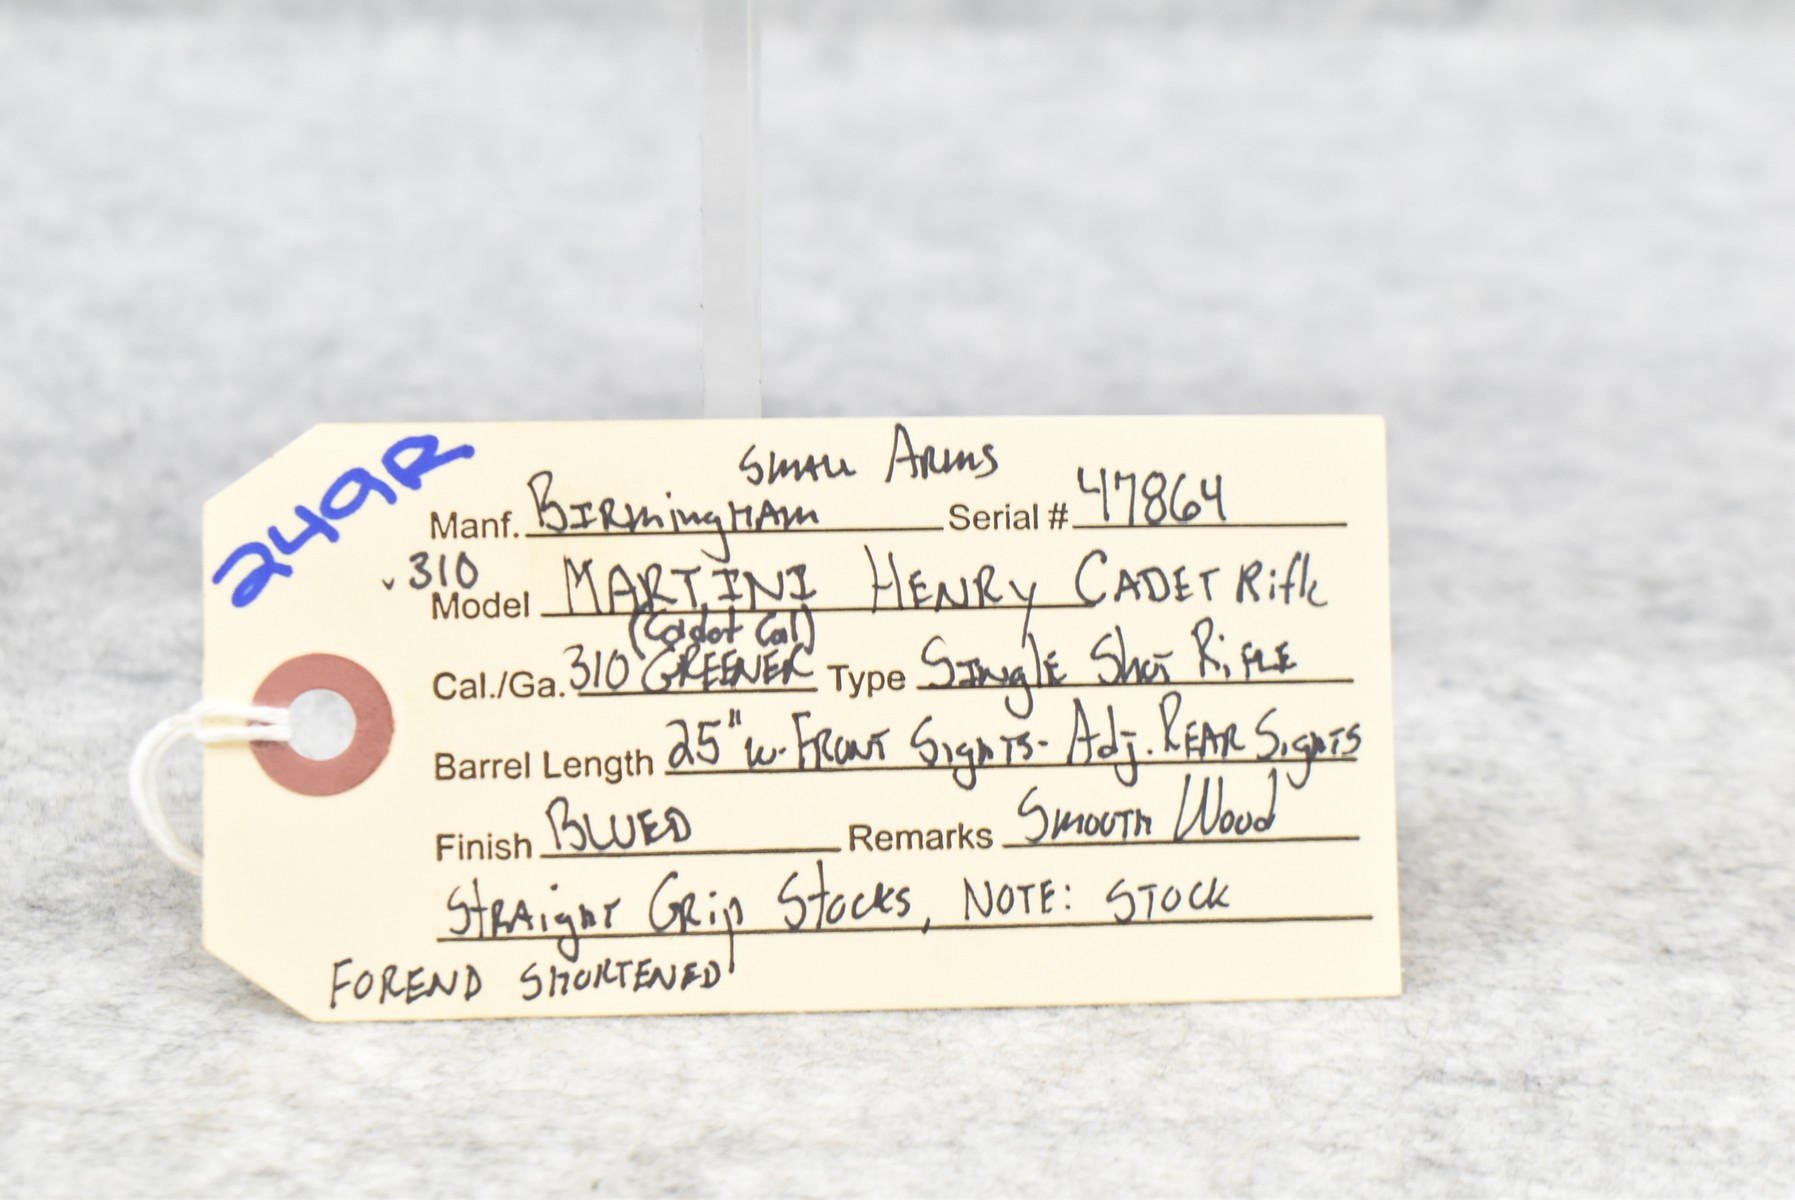 249R
Small Arms
Manf. Birmingham Serial # 47864
.310
Model Martini Henry Cadet Rifle
(Cadet Cal)
Cal./Ga. 310 Greener Type Single Shot Rifle
Barrel Length 25" w- Front Sights- Adj. Rear Sights
Finish Blued Remarks Smooth Wood
Straight Grip Stocks, NOTE: STOCK
FOREND SHORTENED